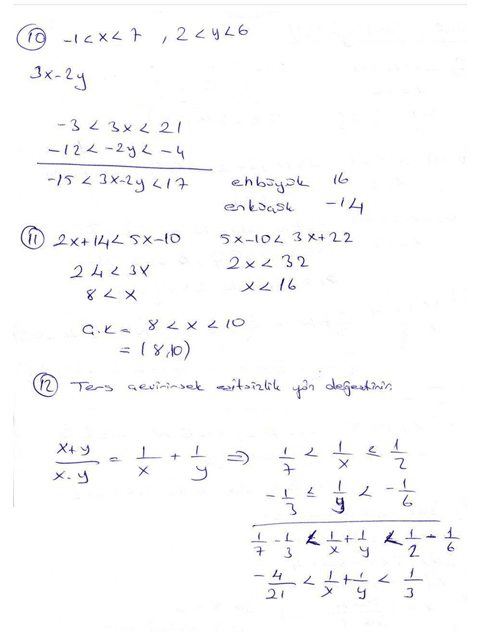 10 -1 < x < 7 , 2 < y < 6
3x-2y
-3 < 3x < 21
-12 < -2y < -4
-15 < 3x-2y < 17 enbüyük 16
enküçük -14
11 2x+14 < 5x-10 5x-10 < 3x+22
24 < 3x 2x < 32
8 < x x < 16
Ç.K = 8 < x < 10
= (8,10)
12 Ters çevirirsek eşitsizlik yön değiştirir.
x+y / x.y = 1/x + 1/y ⇒ 1/7 < 1/x ≤ 1/2
-1/3 ≤ 1/y < -1/6
1/7 - 1/3 < 1/x + 1/y < 1/2 - 1/6
-4/21 < 1/x + 1/y < 1/3